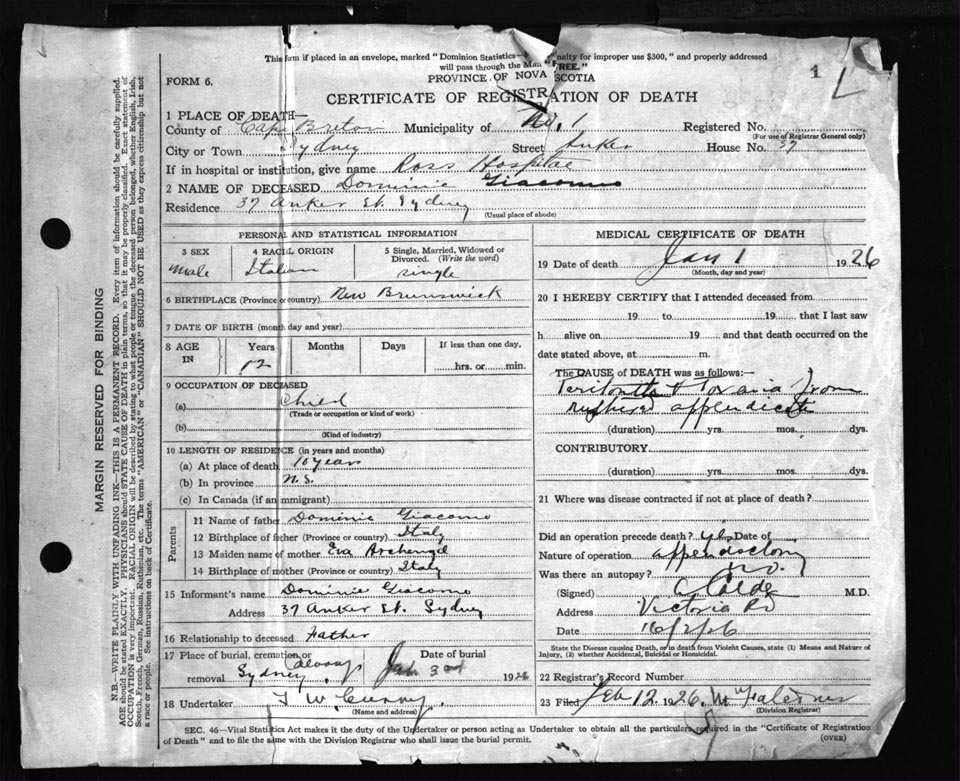 This form if placed in an envelope, marked "Dominion Statistics— nalty for improper use $300," and properly addressed
will pass through the Mail "FREE."
FORM 6.
PROVINCE OF NOVA SCOTIA
1
CERTIFICATE OF REGISTRATION OF DEATH
1 PLACE OF DEATH—
County of Cape Breton Municipality of No. 1 Registered No.
(For use of Registrar General only)
City or Town Sydney Street Anker House No. 37
If in hospital or institution, give name Ross Hospital
2 NAME OF DECEASED Dominic Giacomo
Residence 37 Anker St. Sydney
(Usual place of abode)
PERSONAL AND STATISTICAL INFORMATION
3 SEX 4 RACIAL ORIGIN 5 Single, Married, Widowed or Divorced. (Write the word)
Male Italian single
6 BIRTHPLACE (Province or country) New Brunswick
7 DATE OF BIRTH (month day and year)
8 AGE IN Years Months Days If less than one day,
12 hrs. or min.
9 OCCUPATION OF DECEASED
(a) Child
(Trade or occupation or kind of work)
(b)
(Kind of industry)
10 LENGTH OF RESIDENCE (in years and months)
(a) At place of death 10 years
(b) In province N.S.
(c) In Canada (if an immigrant)
Parents
11 Name of father Dominic Giacomo
12 Birthplace of father (Province or country) Italy
13 Maiden name of mother Eva Archangel
14 Birthplace of mother (Province or country) Italy
15 Informant's name Dominic Giacomo
Address 37 Anker St. Sydney
16 Relationship to deceased Father
17 Place of burial, cremation or removal Sydney Calvary Date of burial Jan 3rd 1926
18 Undertaker T W Curry
(Name and address)
MEDICAL CERTIFICATE OF DEATH
19 Date of death Jan 1 1926
(Month, day and year)
20 I HEREBY CERTIFY that I attended deceased from
19 to 19 that I last saw
h alive on 19 and that death occurred on the
date stated above, at m.
The CAUSE of DEATH was as follows:—
Peritonitis & Toxaemia from
ruptured appendicitis
(duration) yrs. mos. dys.
CONTRIBUTORY
(duration) yrs. mos. dys.
21 Where was disease contracted if not at place of death?
Did an operation precede death? yes Date of
Nature of operation appendectomy
Was there an autopsy? no.
(Signed) M.D.
Address Victoria Rd
Date 16/2/26
State the Disease causing Death, or in death from Violent Causes, state (1) Means and Nature of
Injury, (2) whether Accidental, Suicidal or Homicidal.
22 Registrar's Record Number
23 Filed Feb 12 1926.
(Division Registrar)
SEC. 46—Vital Statistics Act makes it the duty of the Undertaker or person acting as Undertaker to obtain all the particulars required in the "Certificate of Registration
of Death" and to file the same with the Division Registrar who shall issue the burial permit.
(OVER)
MARGIN RESERVED FOR BINDING
N.B.—WRITE PLAINLY WITH UNFADING INK—THIS IS A PERMANENT RECORD. Every item of information should be carefully supplied.
AGE should be stated EXACTLY. PHYSICIANS should STATE CAUSE OF DEATH in plain terms, so that it may be properly classified. Exact statement of
OCCUPATION is very important. RACIAL ORIGIN will be described by stating to what people or tongue the deceased person belonged, whether English, Irish,
Scotch, French, German, Russian, Ruthenian, etc. The terms "AMERICAN" or "CANADIAN" SHOULD NOT BE USED as they express citizenship but not
a race or people. See instructions on back of Certificate.